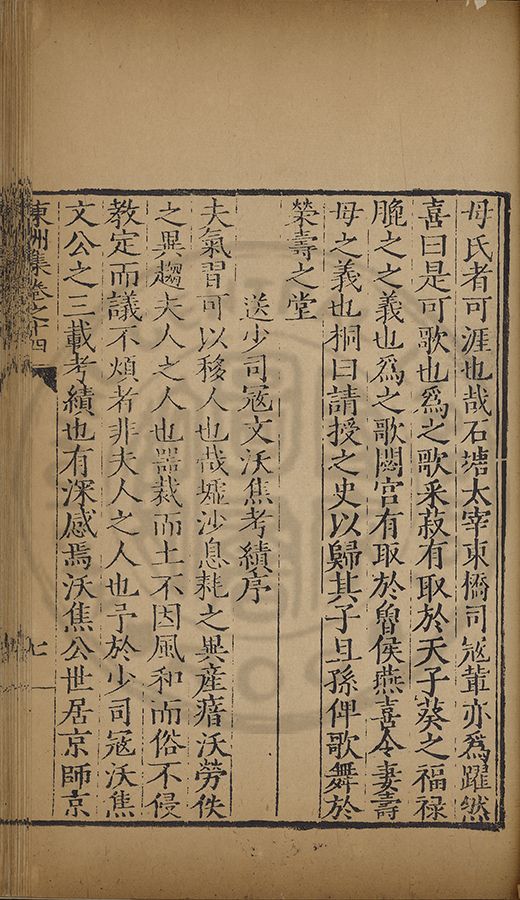 母氏者可涯也哉石塘太宰東橋司冦軰亦爲躍然
喜曰是可歌也爲之歌采菽有取於天子葵之福禄
膍之之義也爲之歌閟宫有取於魯侯燕喜令妻壽
母之義也桐曰請授之史以歸其子旦孫俾歌舞於
榮壽之堂
送少司冦文沃焦考績序
夫氣習可以移人也哉壚沙息耗之異産瘠沃勞佚
之異趨夫人之人也器裁而土不因風和而俗不侵
教定而議不煩者非夫人之人也予於少司冦沃焦
文公之三載考績也有深感焉沃焦公世居京師京
東洲集卷之十四
七